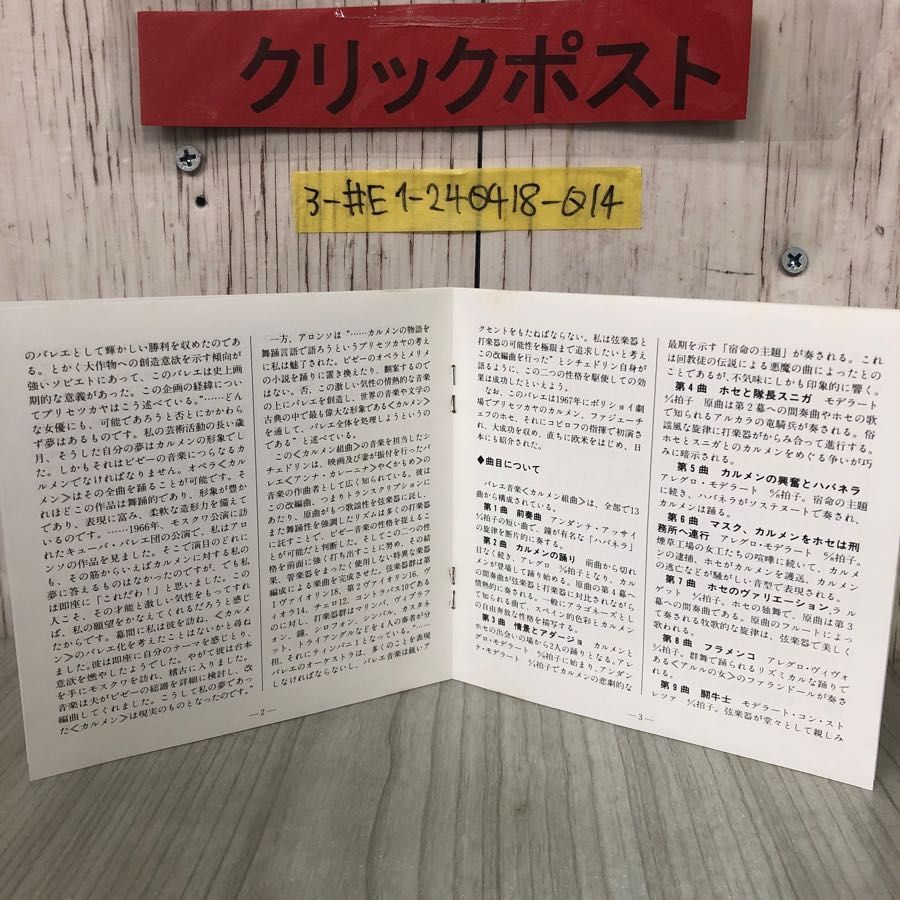 クリックポスト
3-#E1-240418-014
のバレエとして輝かしい勝利を収めたのであ
る。とかく大作物への創造意欲を示す傾向が
強いソビエトにあって、このバレエは史上画
期的な意義があった。この企画の経緯につい
てプリセツカヤはこう述べている。“……どん
な女優にも、可能であろうと否とにかかわら
ず夢はあるものです。私の芸術活動の長い歳
月、そうした自分の夢はカルメンの形象でし
た。しかもそれはビゼーの音楽につらなるカ
ルメンでなければなりません。オペラ<カル
メン>はその全曲を踊ることが可能です。そ
れほどこの作品は舞踊的であり、形象が豊か
であり、表現に富み、柔軟な造形力を備えて
いるのです。……1966年、モスクワ公演に訪
れたキューバ・バレエ団の公演で、私はアロ
ンソの作品を見ました。そこで演目のどれに
も、その筋からいえばカルメンに対する私の
夢に答えるものはなかったのですが、でも私
は即座に「これだわ！」と思いました。この
人こそ、その才能と激しい気性をもってすれ
ば、私の願望をかなえてくれるだろうと感じ
たからです。幕間に私は彼を訪ね、<カルメ
ン>のバレエ化を考えたことはないかと尋ね
ました。彼は即座に自分のテーマを感じとり、
意欲を燃やしたようでした。やがて彼は台本
を手にモスクワを訪れ、稽古に入りました。
音楽は夫がビゼーの総譜を詳細に検討し、改
編曲してくれました。こうして私の夢であっ
た<カルメン>は現実のものとなったのです。”
—2—
一方、アロンソは“……カルメンの物語を
舞踊言語で語ろうというプリセツカヤの考え
に私は魅了された。ビゼーのオペラとメリメ
の小説を踊りに置き換えたり、翻案するので
はない。否、この激しい気性の情熱的な音楽
の上にバレエを創造し、世界の音楽や文学の
古典の中で最も偉大な形象である<カルメン>
を通して、バレエ全体を処理しようというの
である”と述べている。
この<カルメン組曲>の音楽を担当したシ
チェドリンは、映画及び妻が振付を行ったバ
レエ<アンナ・カレーニナ>や<かもめ>の
音楽の作曲者として広く知られている。彼は
この改編曲、つまりトランスクリプションに
あたり、原曲がもつ歌謡性を弦楽器に託し、
また舞踊性を強調したリズムは多くの打楽器
に託すことで、ビゼー音楽の性格を捉えるこ
とが可能だと判断した。そしてこの二つの性
格を前面に強く打ち出すことに努め、その結
果、管楽器をまったく使用しない特異な楽器
編成による楽曲を完成させた。弦楽器群は第
1ヴァイオリン18、第2ヴァイオリン16、ヴ
ィオラ14、チェロ12、コントラバス10である
のに対し、打楽器群はマリンバ、ヴィブラフ
ォン、鐘、シロフォン、シンバル、カスタネ
ット、トライアングルなどを4人の奏者が分
担、それにティンパニ1となっている。
バレエのオーケストラは、多くのことを表現
しなければならないし、バレエ音楽は鋭いア
クセントをもたねばならない。私は弦楽器と
打楽器の可能性を極限まで追求したいと考え
この改編曲を行った”とシチェドリン自身が
語るように、この二つの性格を駆使しての効
果は成功したといえよう。
なお、このバレエは1967年にボリショイ劇
場でプリセツカヤのカルメン、ファジェーチ
ェフのホセ、それにコピロフの指揮で初演さ
れ、大成功を収め、直ちに欧米をはじめ、日
本にも紹介された。
◆曲目について
バレエ音楽<カルメン組曲>は、全部で13
曲から構成されている。
第1曲 前奏曲 アンダンテ・アッサイ
4/4拍子の短い曲で、鐘が有名な「ハバネラ」
の旋律を断片的に奏する。
第2曲 カルメンの踊り 前曲から切れ
目なく続き、アレグロ 3/8拍子となり、カル
メンが登場して踊り始める。原曲の第4幕へ
の間奏曲が弦楽器と打楽器に対比されながら
情熱的に奏される。一般にアラゴネーズとし
て知られる曲で、スペイン的色彩とカルメン
の自由奔放な性格を描写する。
第3曲 情景とアダージョ カルメンと
ホセの出会いの場から2人の踊りとなる。アレ
グロ・モデラート 6/8拍子に始まり、アンダン
テ・モデラート 4/4拍子でカルメンの悲劇的な
—3—
最期を示す「宿命の主題」が奏される。これ
は回教徒の伝説による悪魔の曲によったとの
ことであるが、不気味にしかも印象的に響く。
第4曲 ホセと隊長スニガ モデラート
4/4拍子 原曲は第2幕への間奏曲やホセの歌
で知られるアルカラの竜騎兵が奏される。俗
謡風な旋律に打楽器がからみ合って進行する。
ホセとスニガとのカルメンをめぐる争いが巧
みに暗示される。
第5曲 カルメンの興奮とハバネラ
アレグロ・モデラート 6/8拍子。宿命の主題
に続き、ハバネラがソステヌートで奏され、
カルメンは踊る。
第6曲 マスク、カルメンをホセは刑
務所へ連行 アレグロ・モデラート 6/8拍子。
煙草工場の女工たちの喧嘩に続いて、カルメ
ンの逮捕、ホセがカルメンを護送、カルメン
の逃亡などが騒がしい音型で表現される。
第7曲 ホセのヴァリエーション ラル
ゲット 4/4拍子。ホセの独舞で、原曲は第3
幕への間奏曲である。原曲のフルートによっ
て奏される牧歌的な旋律は、弦楽器で美しく
歌われる。
第8曲 フラメンコ アレグロ・ヴィヴォ
2/4拍子。群舞で踊られるリズミカルな踊りで
ある<アルルの女>のファランドールが奏さ
れる。
第9曲 闘牛士 モデラート・コン・スト
レツァ 4/4拍子。弦楽器が堂々として親しみ